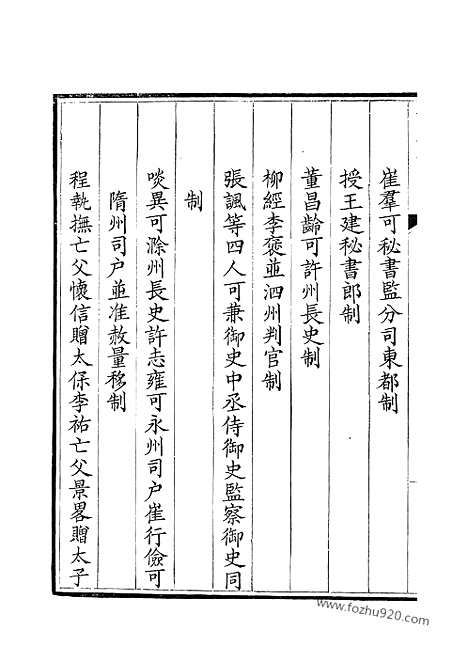 崔羣可秘書監分司東都制
授王建秘書郎制
董昌齡可許州長史制
柳經李褒並泗州判官制
張諷等四人可兼御史中丞侍御史監察御史同
制
啖異可滁州長史許志雍可永州司户崔行儉可
隋州司户並准赦量移制
程執撫亡父懷信贈太保李祐亡父景畧贈太子
www.fozhu920.com